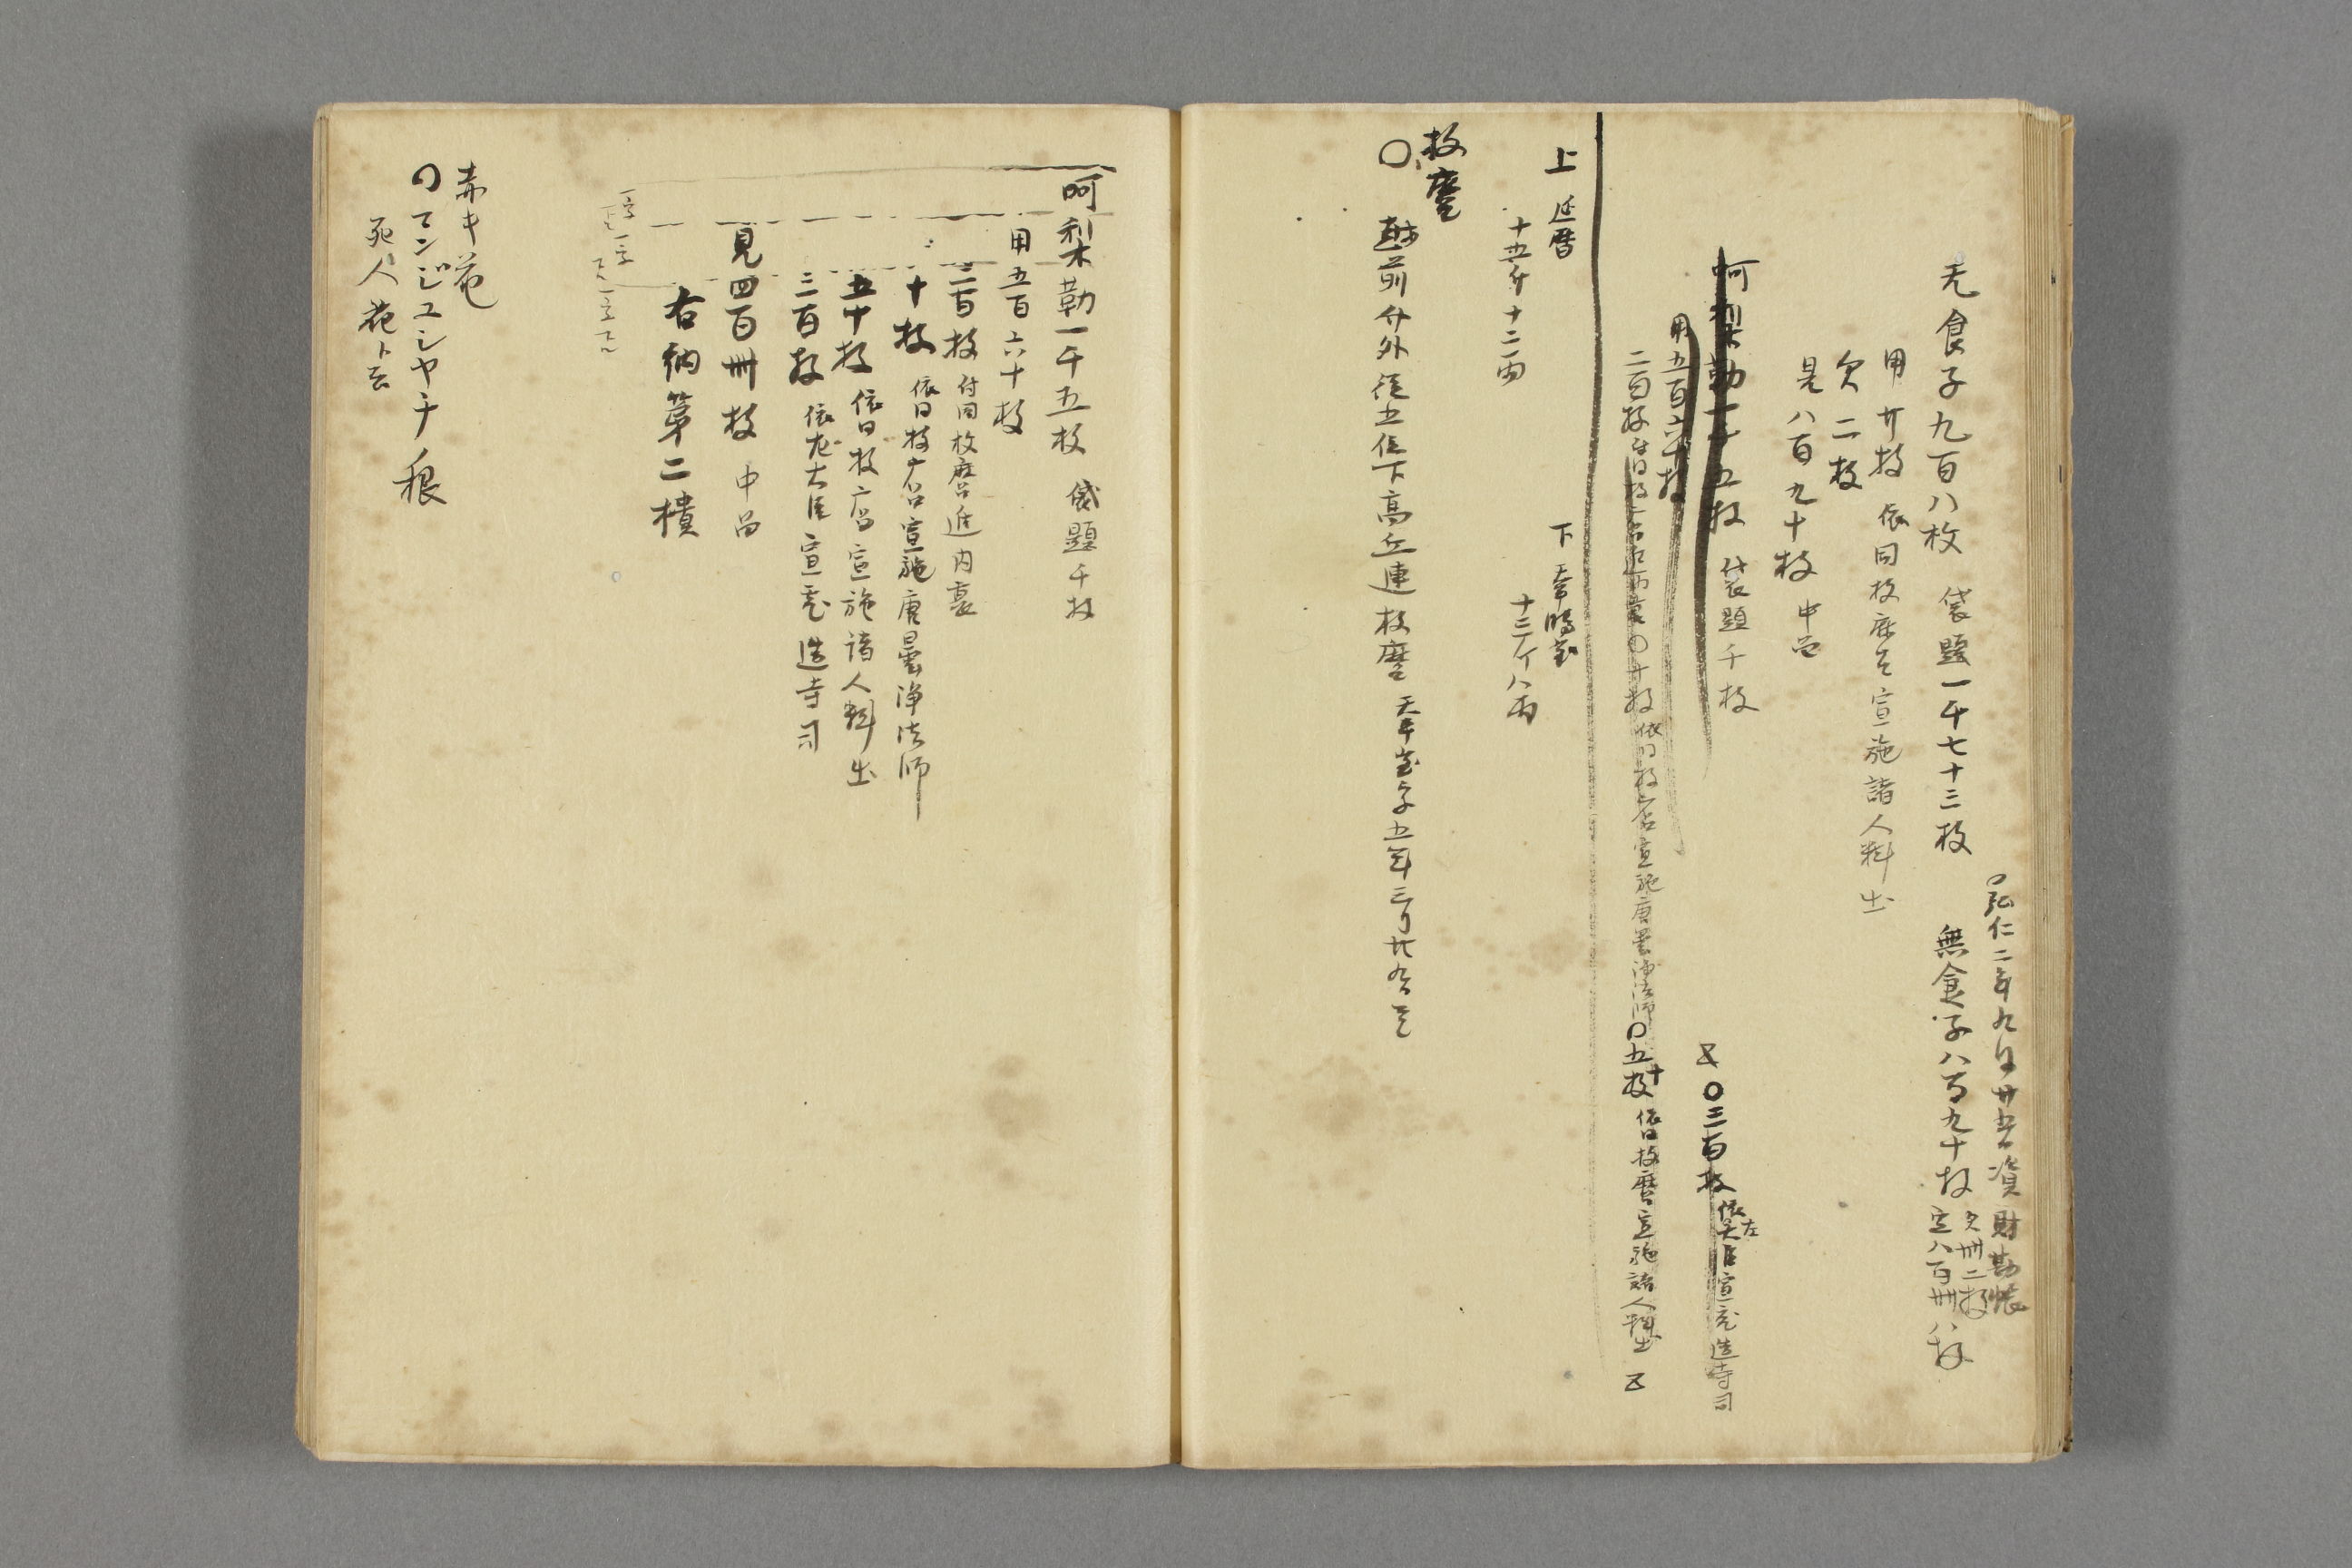 弘仁二年九月廿五日資財勘帳
无食子九百八枚 袋題一千七十三枚
無食子八百九十枚 欠卌二枚 定八百卌八枚
用廿枚 依同枚麻呂宣施諸人料出
欠二枚
見八百九十枚 中品
呵梨勒一千五枚 袋題千枚
〇三百枚 依左大臣宣充造寺司
用五百六十枚
二百枚 付同枚麻呂進内裏〇十枚 依同枚麻呂宣施唐曇浄法師〇五十枚 依同枚麿宣施諸人料出
上 延暦 十五斤十二両
下 天平勝宝 十三斤八両
枚麿
〇越前介外従五位下高丘連枚麿 天平宝字五年三月廿九日
呵梨勒一千五枚 袋題千枚
用五百六十枚
二百枚 付同枚麿進内裏
十枚 依同枚麻呂宣施唐曇浄法師
五十枚 依同枚麻呂宣施諸人料出
三百枚 依左大臣宣充造寺司
見四百卌枚 中品
右納第二櫃
赤キ花
〇マンジユシヤケ 根
死人花ト云